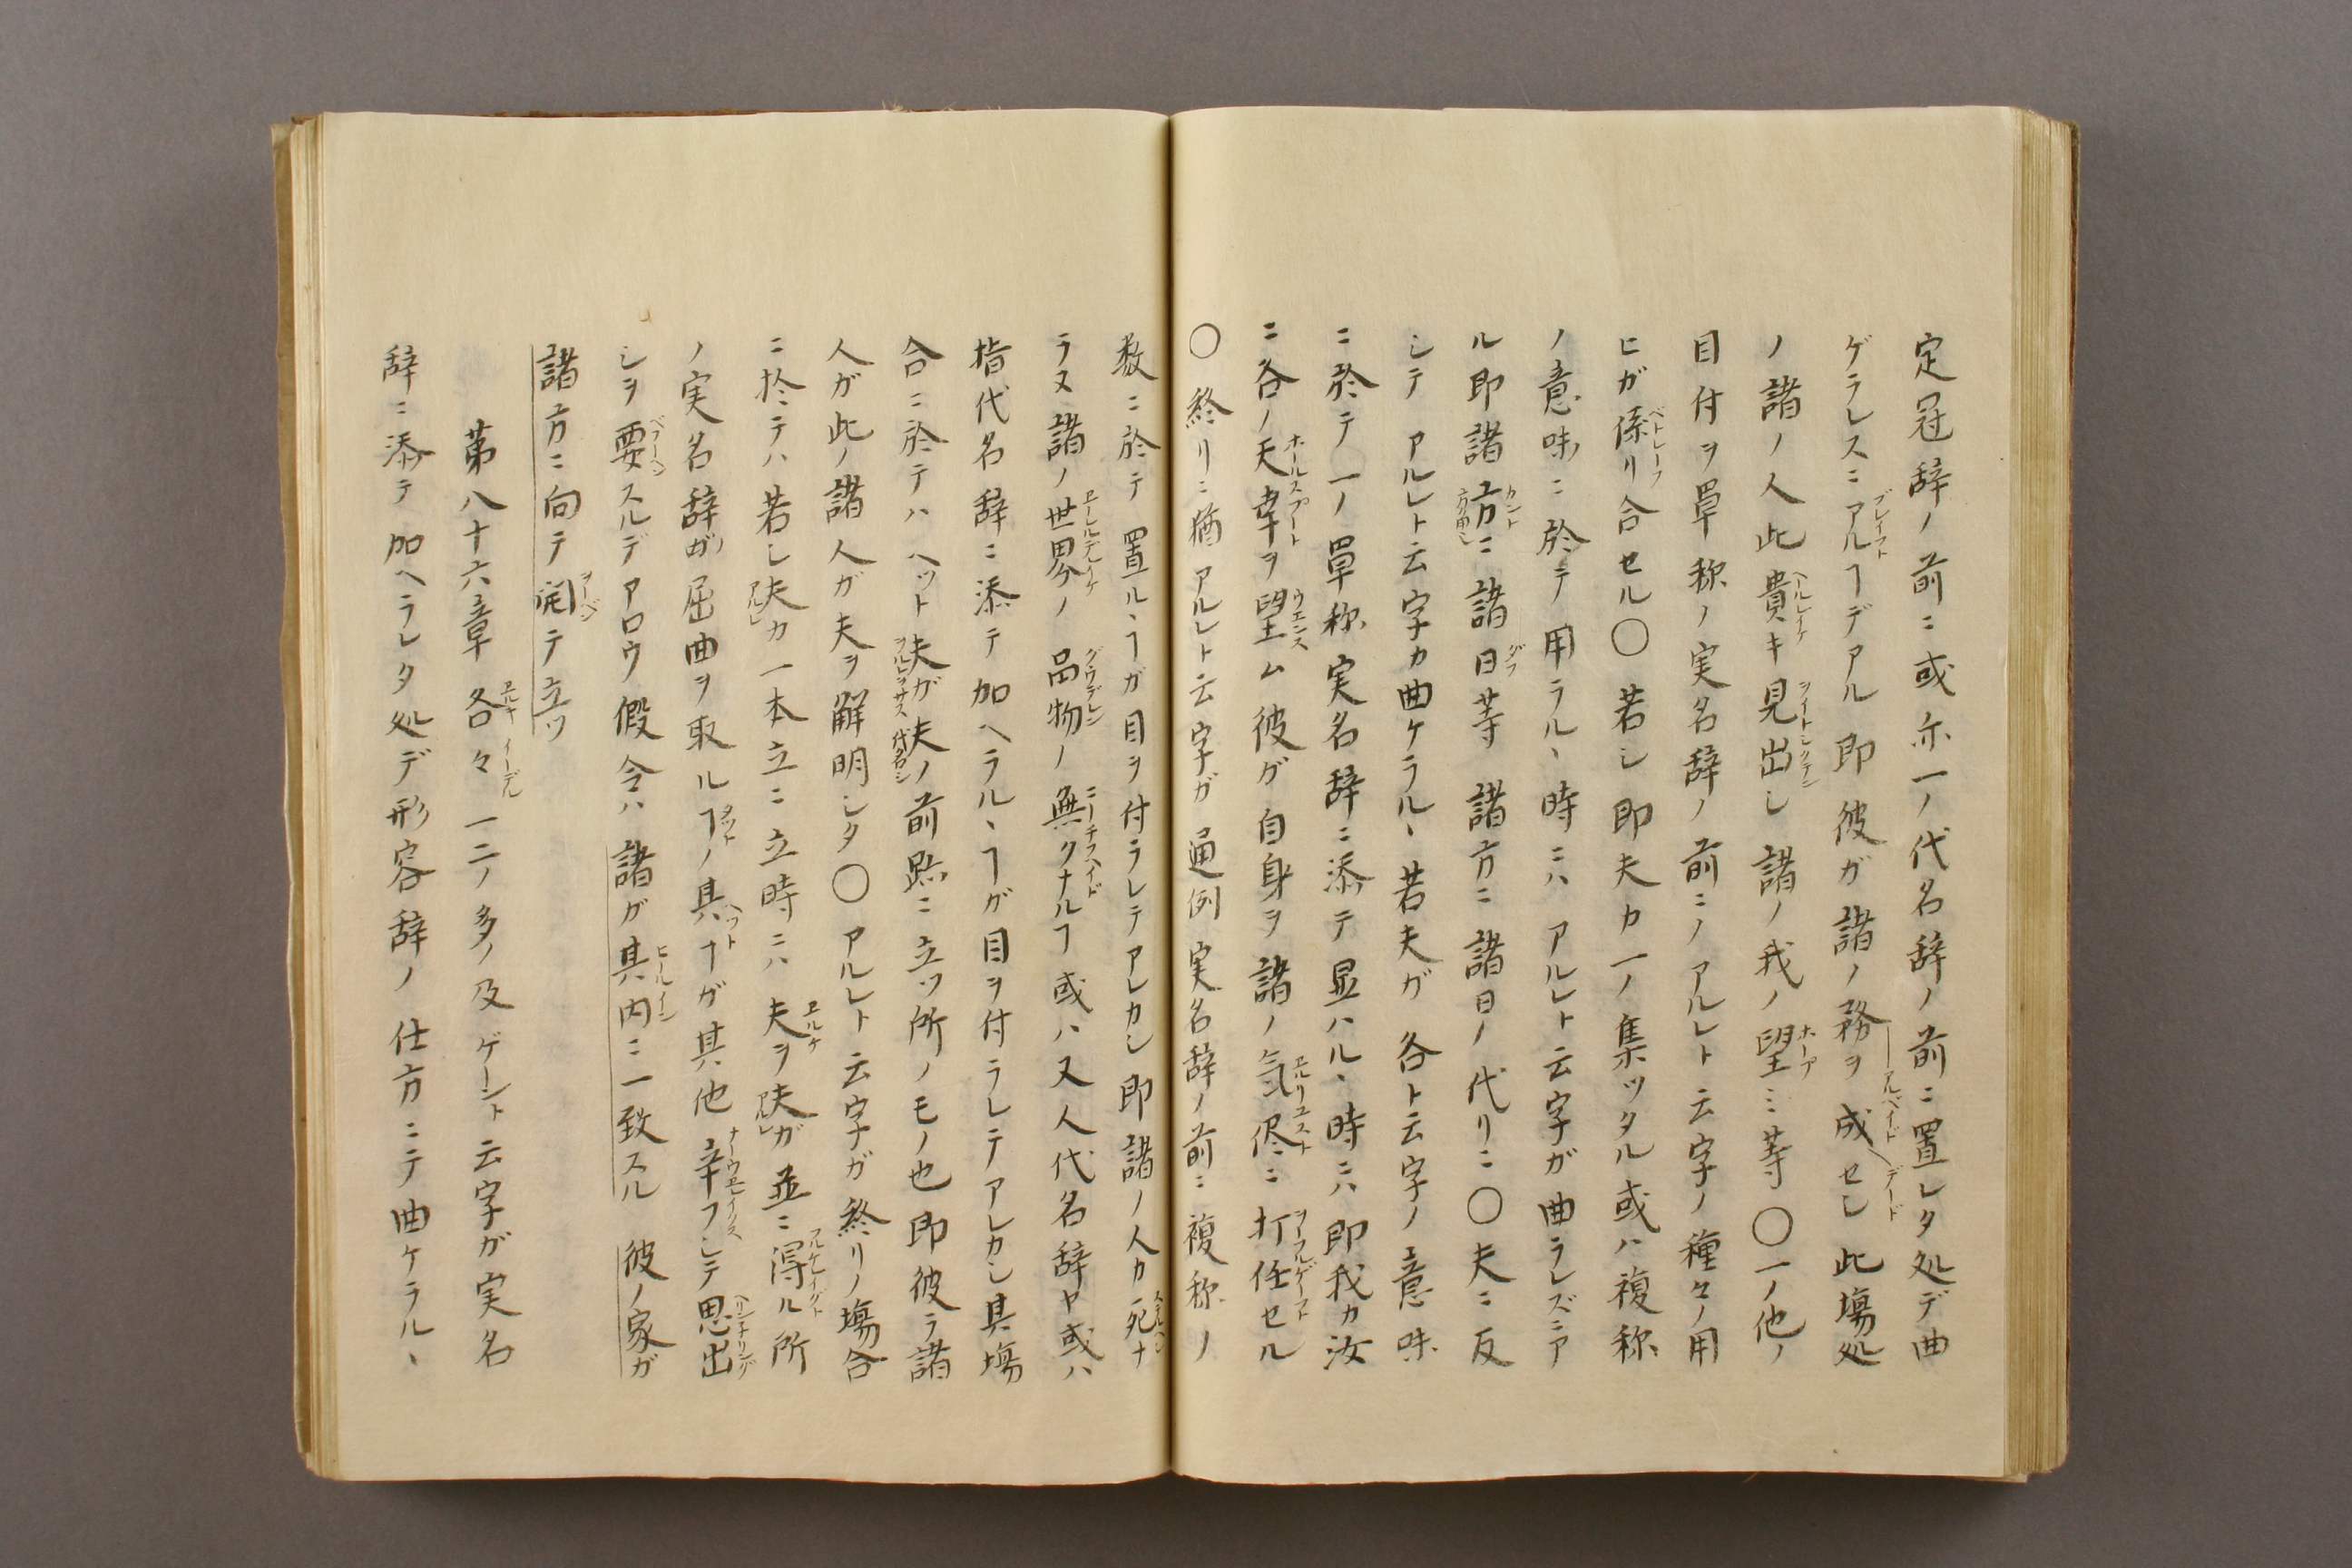 定冠辞ノ前ニ或亦一ノ代名辞ノ前ニ置レタ処デ曲
ゲラレスニアルヿデアル即彼ガ諸ノ務ヲ成セシ此場処
ノ諸ノ人此貴キ見出シ諸ノ我ノ望ミ等〇一ノ他ノ
目付ヲ単称ノ実名辞ノ前ニノアルレト云字ノ種々ノ用
ヒガ係リ合セル〇若シ即夫カ一ノ集ツタル或ハ複称
ノ意味ニ於テ用ラルヽ時ニハアルレト云字ガ曲ラレズニア
ル即諸方ニ諸日等諸方ニ諸日ノ代リニ〇夫ニ反
シテアルレト云字カ曲ケラルヽ若夫ガ各ト云字ノ意味
ニ於テ一ノ単称実名辞ニ添テ显ハルヽ時ニハ即我カ汝
ニ各ノ天幸ヲ望ム彼ガ自身ヲ諸ノ気侭ニ打任セル
〇終リニ猶アルレト云字ガ通例実名辞ノ前ニ複称ノ
数ニ於テ置ルヽヿガ目ヲ付ラレテアレカシ即諸ノ人カ死ナ
ラヌ諸ノ世界ノ品物ノ無クナルヿ或ハ又人代名辞ヤ或ハ
指代名辞ニ添テ加ヘラルヽヿガ目ヲ付ラレテアレカシ其場
合ニ於テハヘット夫ガ夫ノ前ニ立ツ所ノモノ也即彼ラ諸
人ガ此ノ諸人ガ夫ヲ解明シタ〇アルレト云字ガ終リノ場合
ニ於テハ若シ夫カ一本立ニ立時ニハ夫ヲ夫ガ並ニ得ル所
ノ実名辞ガ屈曲ヲ取ルヿノ其ヿガ其他辛フシテ思出
シヲ要スルデアロウ假令ハ諸ガ其内ニ一致スル彼ノ家ガ
諸方ニ向テ開テ立ツ
第八十六章各々一二ノ多ノ及ゲーント云字ガ実名
辞ニ添テ加ヘラレタ処デ形容辞ノ仕方ニテ曲ケラルヽ